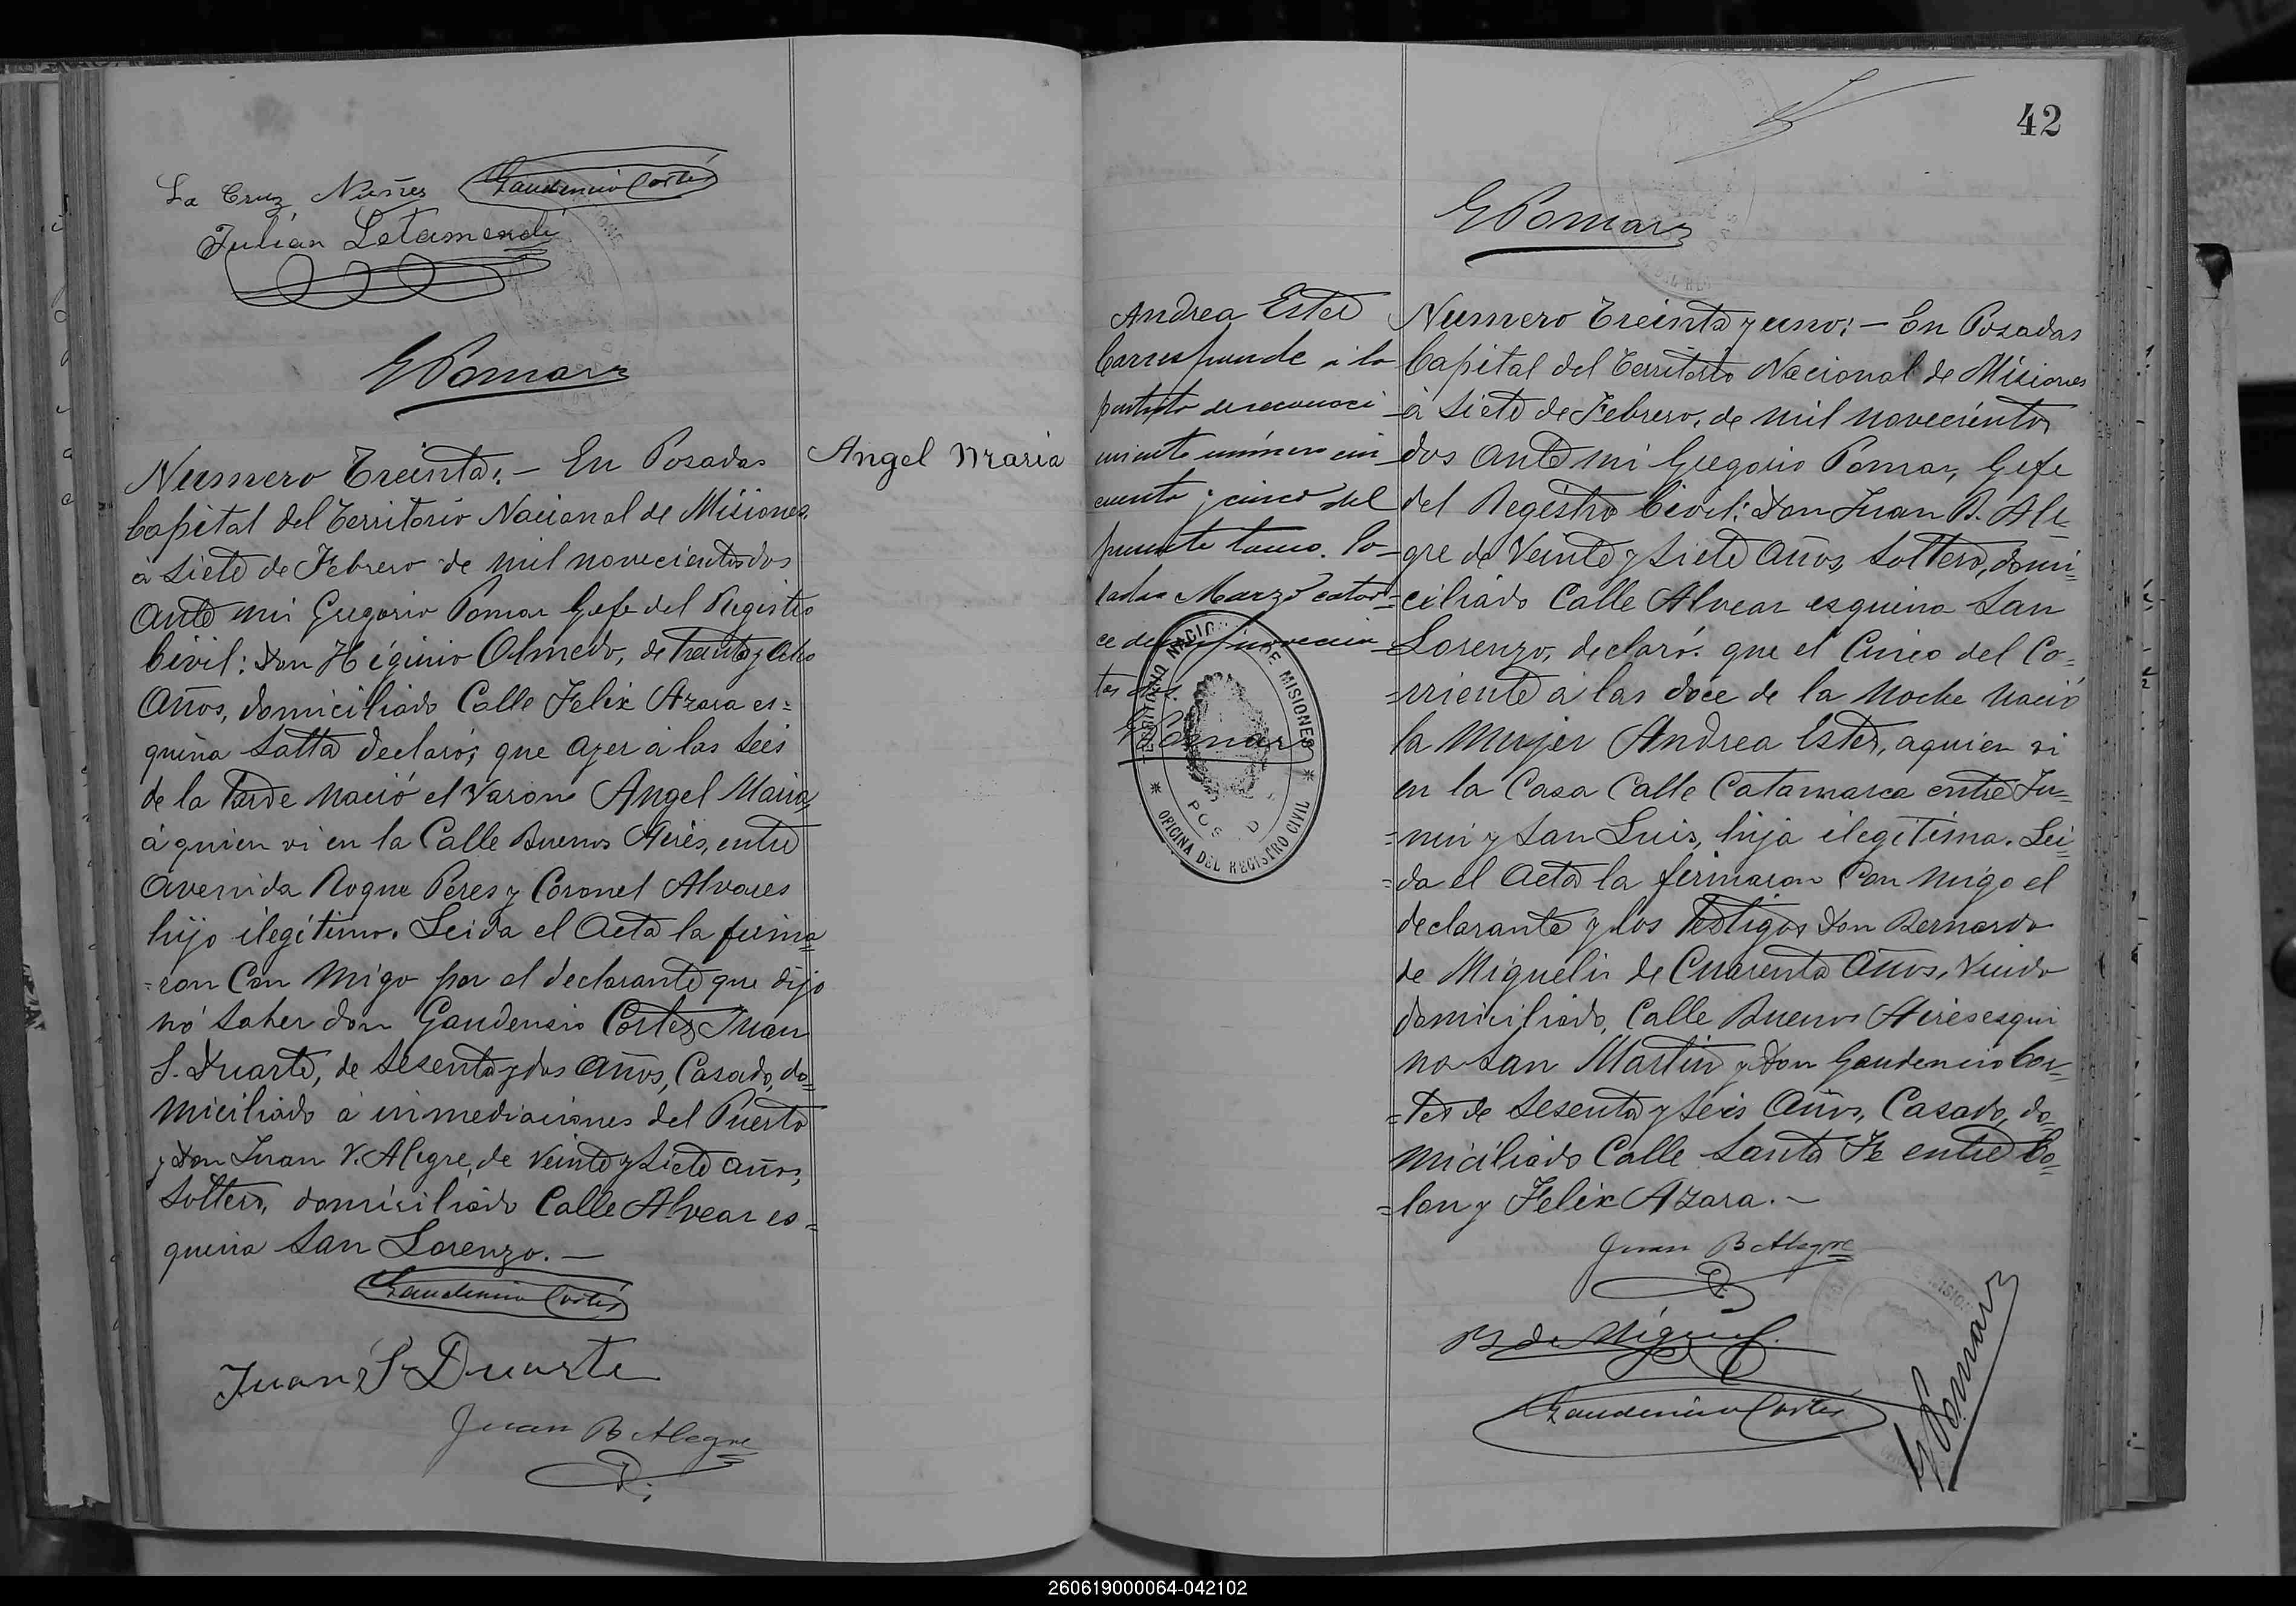 La Cruz Nuñes Gaudencio Cortés
Julián Letamendi
G Pomar
Angel Maria
Numero Treinta: — En Posadas
Capital del Territorio Nacional de Misiones,
á siete de Febrero de mil novecientos dos
Ante mi Gregorio Pomar Gefe del Registro
Civil: Don Higinio Olmedo, de treinta y ocho
Años, domiciliado Calle Felix Azara es=
quina Salta declaró; que ayer á las seis
de la tarde nació el Varon Angel Maria,
á quien vi en la Calle Buenos Aires, entre
Avenida Roque Peres y Coronel Alvares
hijo ilegítimo. Leida el Acta la firma=
=ron Con Migo por el declarante que dijo
nó saber don Gaudensio Cortes Juan
S. Duarte, de sesenta y dos Años, Casado, do=
miciliado á inmediaciones del Puerto
y Don Juan V. Alegre, de Veinte y siete años,
Soltero, domisiliado Calle Alvear es=
quina San Lorenzo. —
Gaudencio Cortés
Juan S Duarte
Juan B Alegre
42
G Pomar
Andrea Ester
Corresponde á la
de reconoci
miento número cin
cuenta y cinco del
presente tomo. Po-
sadas Marzo cator=
ce de mil novecien
tos dos.
G Pomar
TERRITORIO NACIONAL DE MISIONES
POSADAS
* OFICINA DEL REGISTRO CIVIL *
Numero Treinta y uno: — En Posadas
Capital del Territorio Nacional de Misiones
á siete de Febrero, de mil novecientos
dos Ante mi Gregorio Pomar, Gefe
del Registro Civil: Don Juan B. Ale=
gre de Veinte y siete Años, Soltero, domi=
=ciliado Calle Alvear esquina San
Lorenzo, declaró: que el Cinco del Co=
=rriente á las doce de la Noche Nació
la Mujer Andrea Ester, aquien vi
en la Casa Calle Catamarca entre Ju=
=nin y San Luis, hija ilegítima. Lei=
=da el Acta la firmaron Con migo el
declarante y los testigos Don Bernardo
de Miguelis de Cuarenta Años, Viudo
domiciliado, Calle Buenos Aires esqui
na San Martin y Don Gaudencio Cor=
=tes de Sesenta y Seis Años, Casado, do=
miciliado Calle Santa Fe entre Co=
=lon y Felix Azara. —
Juan B Alegre
B de Miguel.
Gaudencio Cortés
G Pomar
260619000064-042102